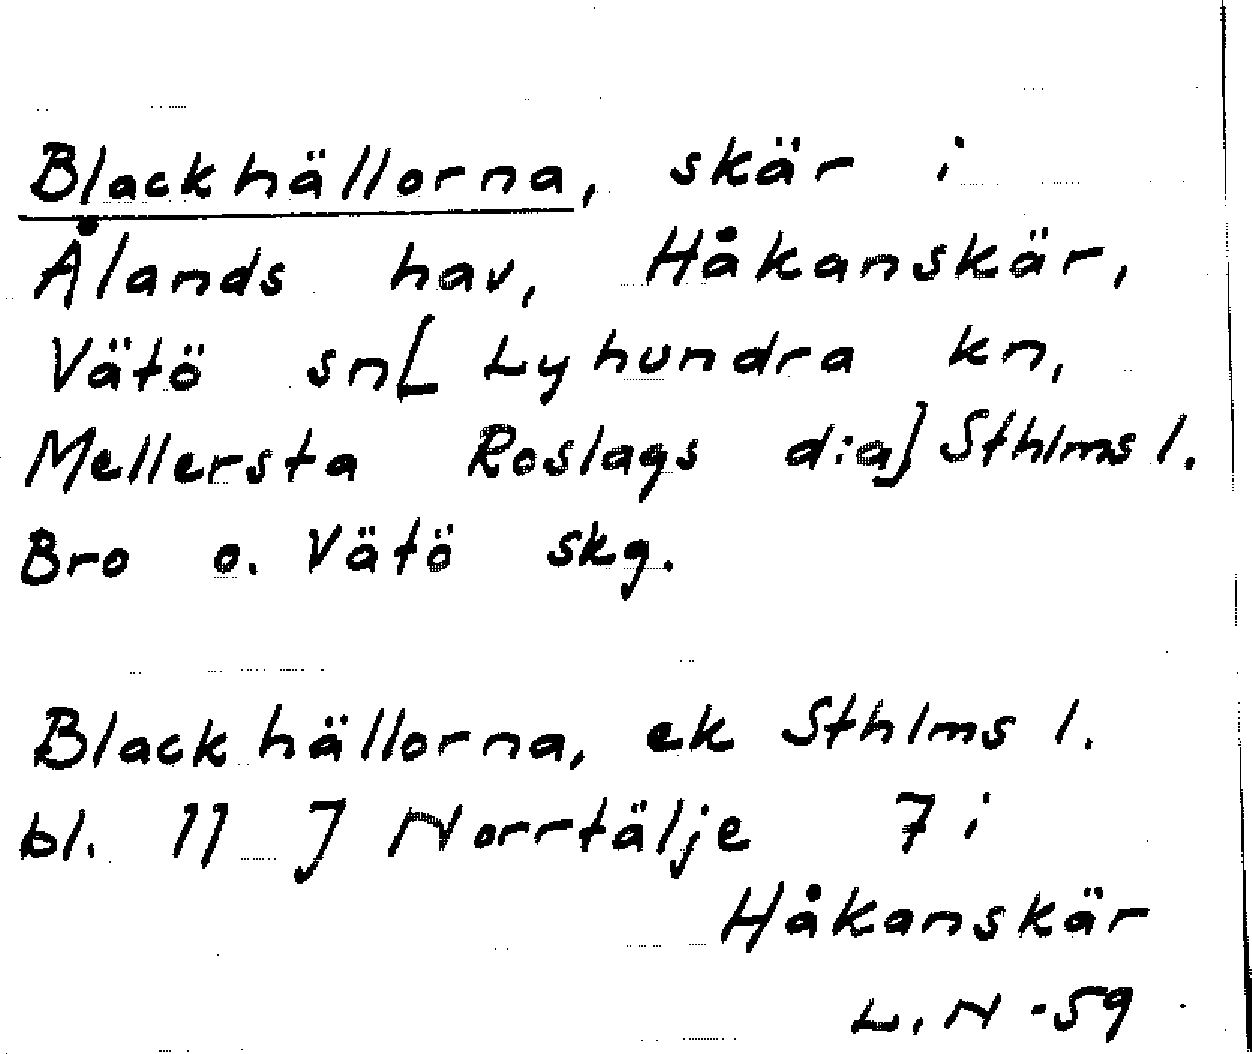 Blackhällorna, skär i
Ålands hav, Håkanskär,
Vätö sn[ Lyhundra kn,
Mellersta Roslags d:a] Sthlms l.
Bro o. Vätö skg.
Blackhällorna, ek Sthlms l.
bl. 11 J Norrtälje 7 i
Håkanskär
L. N -59